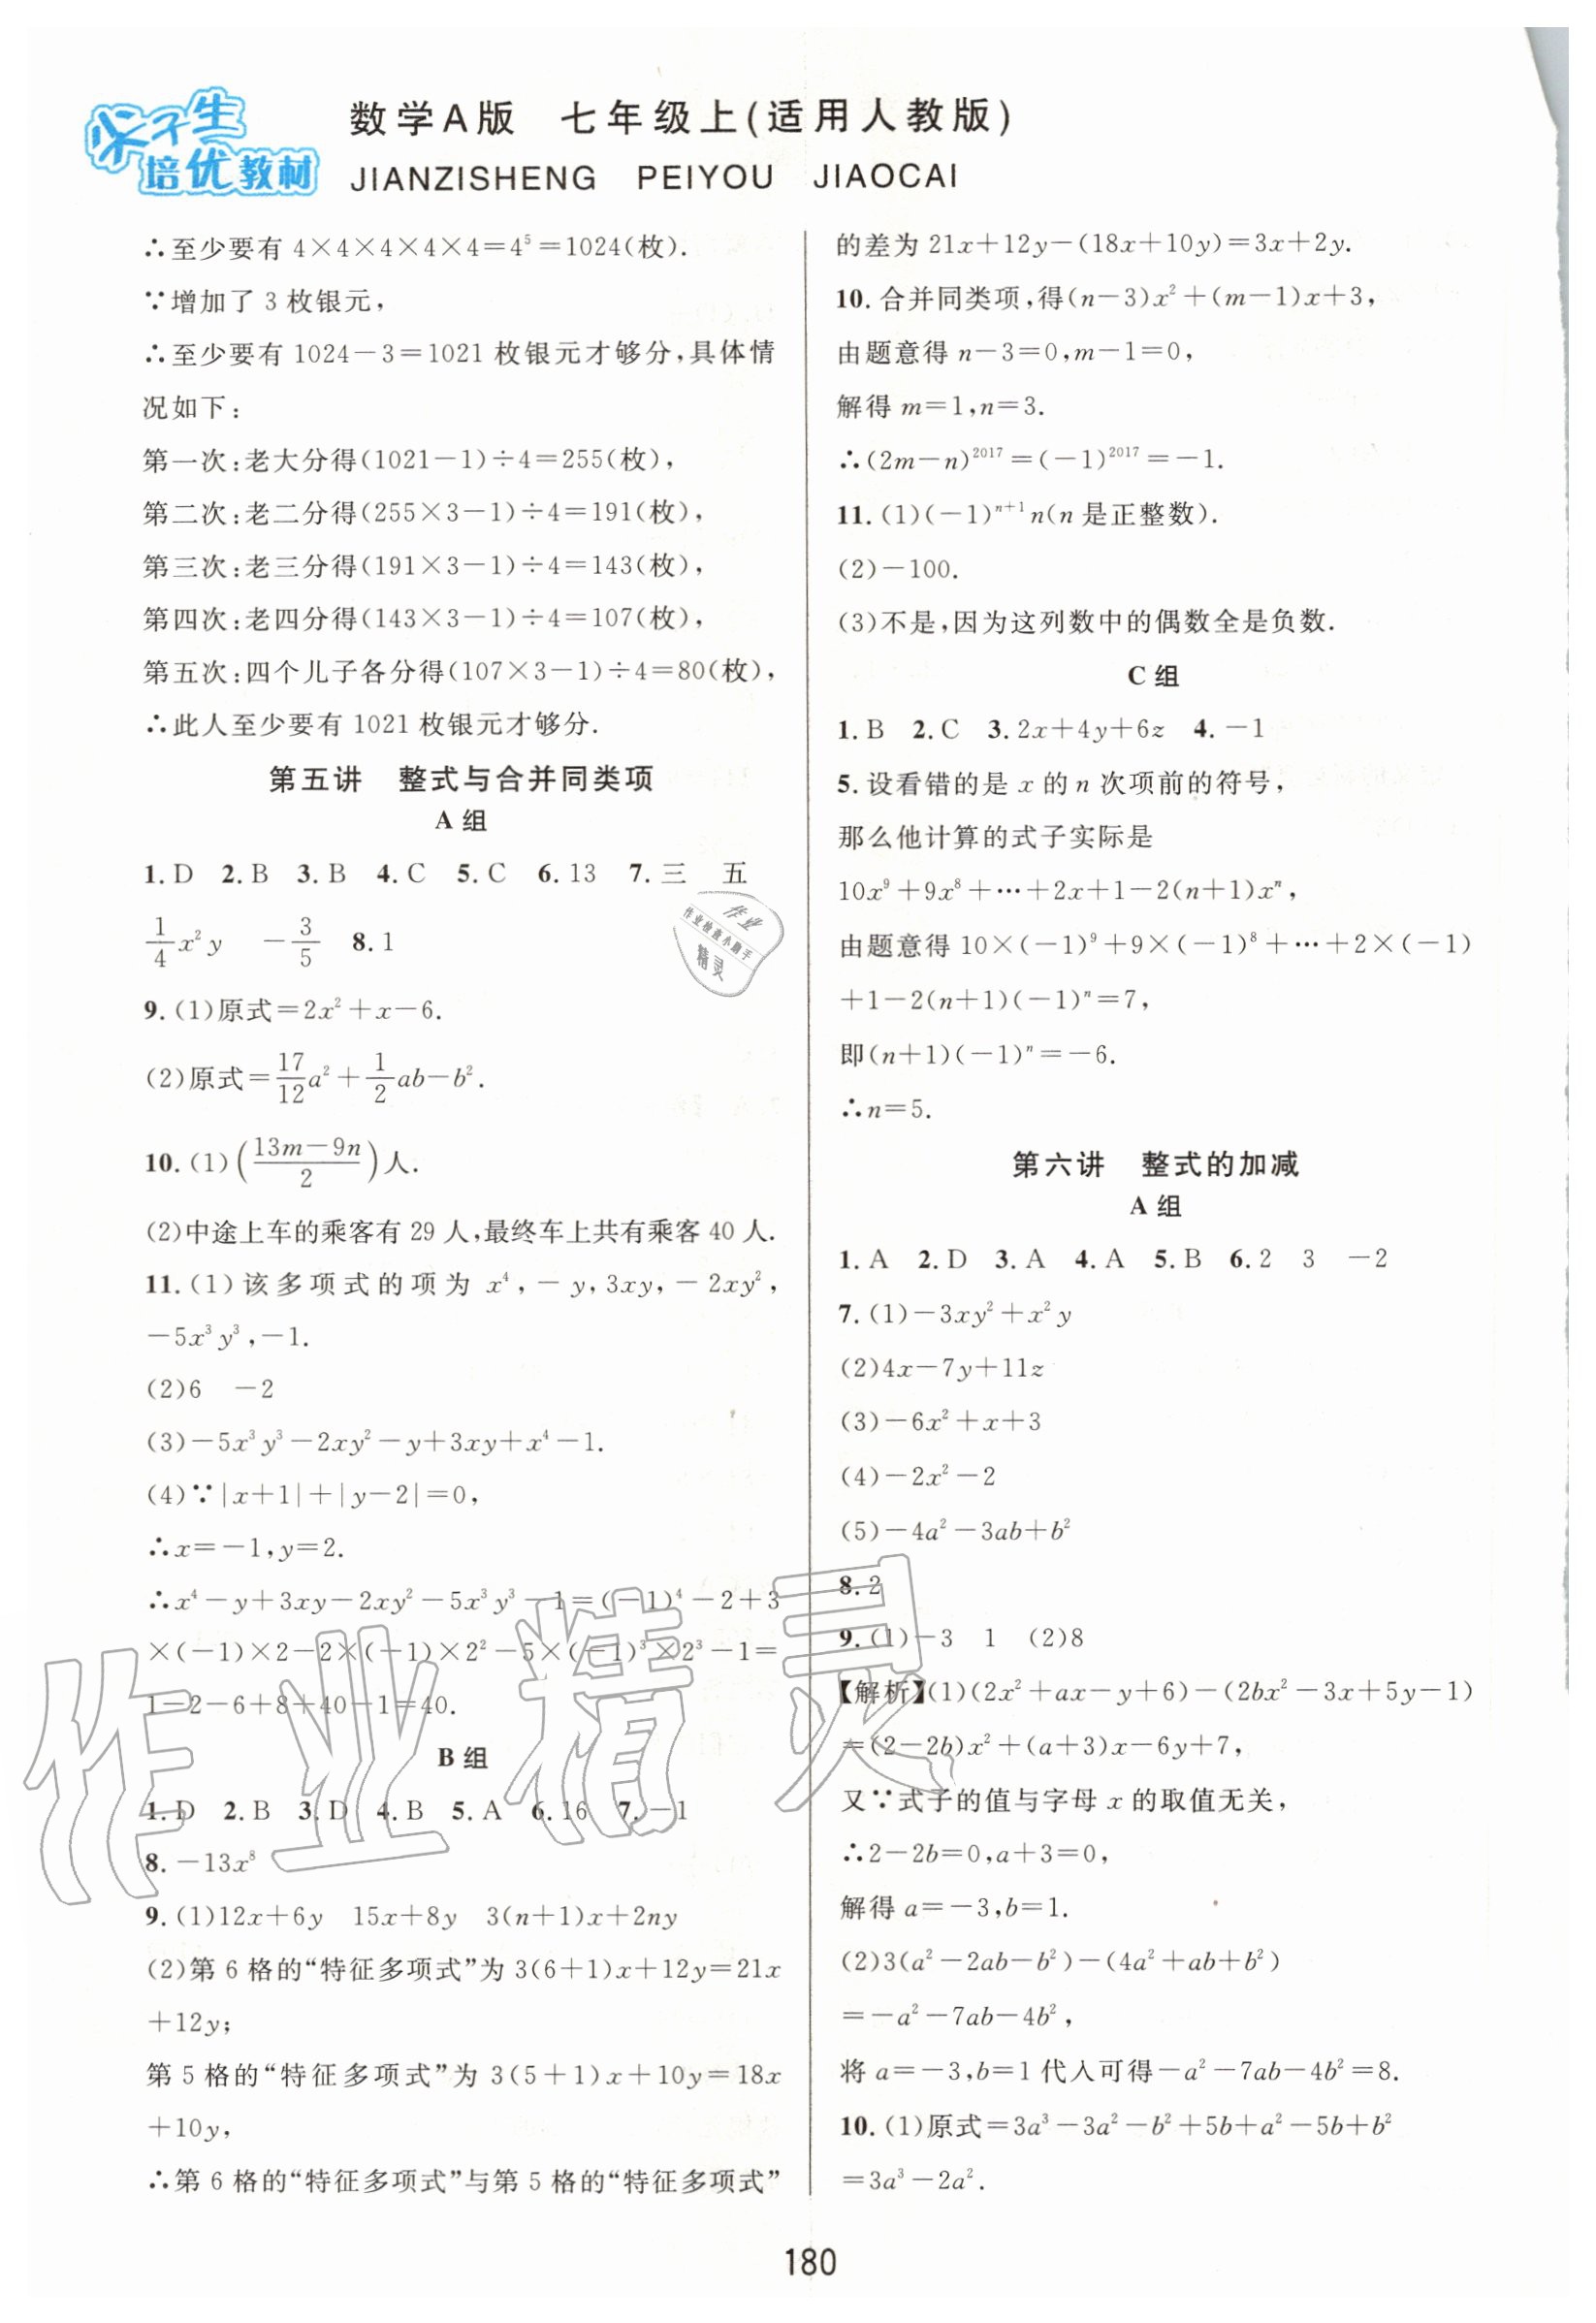 尖子生
培优教材
数学A版 七年级上(适用人教版)
JIANZISHENG PEIYOU JIAOCAI
∴至少要有 4×4×4×4×4=4⁵=1024(枚).
∵增加了 3 枚银元,
∴至少要有 1024-3=1021 枚银元才够分,具体情
况如下:
第一次:老大分得(1021-1)÷4=255(枚),
第二次:老二分得(255×3-1)÷4=191(枚),
第三次:老三分得(191×3-1)÷4=143(枚),
第四次:老四分得(143×3-1)÷4=107(枚),
第五次:四个儿子各分得(107×3-1)÷4=80(枚),
∴此人至少要有 1021 枚银元才够分.
第五讲 整式与合并同类项
A 组
1. D 2. B 3. B 4. C 5. C 6. 13 7. 三 五
1/4 x²y -3/5 8. 1
9. (1)原式=2x²+x-6.
(2)原式=17/12 a²+1/2 ab-b².
10. (1)((13m-9n)/2)人.
(2)中途上车的乘客有 29 人,最终车上共有乘客 40 人.
11. (1)该多项式的项为 x⁴,-y,3xy,-2xy²,
-5x³y³,-1.
(2)6 -2
(3)-5x³y³-2xy²-y+3xy+x⁴-1.
(4)∵|x+1|+|y-2|=0,
∴x=-1,y=2.
∴x⁴-y+3xy-2xy²-5x³y³-1=(-1)⁴-2+3
×(-1)×2-2×(-1)×2²-5×(-1)³×2³-1=
1-2-6+8+40-1=40.
B 组
1. D 2. B 3. D 4. B 5. A 6. 16 7. -1
8. -13x⁸
9. (1)12x+6y 15x+8y 3(n+1)x+2ny
(2)第 6 格的“特征多项式”为 3(6+1)x+12y=21x
+12y;
第 5 格的“特征多项式”为 3(5+1)x+10y=18x
+10y,
∴第 6 格的“特征多项式”与第 5 格的“特征多项式”
的差为 21x+12y-(18x+10y)=3x+2y.
10. 合并同类项,得(n-3)x²+(m-1)x+3,
由题意得 n-3=0,m-1=0,
解得 m=1,n=3.
∴(2m-n)²⁰¹⁷=(-1)²⁰¹⁷=-1.
11. (1)(-1)ⁿ⁺¹n(n 是正整数).
(2)-100.
(3)不是,因为这列数中的偶数全是负数.
C 组
1. B 2. C 3. 2x+4y+6z 4. -1
5. 设看错的是 x 的 n 次项前的符号,
那么他计算的式子实际是
10x⁹+9x⁸+…+2x+1-2(n+1)xⁿ,
由题意得 10×(-1)⁹+9×(-1)⁸+…+2×(-1)
+1-2(n+1)(-1)ⁿ=7,
即(n+1)(-1)ⁿ=-6.
∴n=5.
第六讲 整式的加减
A 组
1. A 2. D 3. A 4. A 5. B 6. 2 3 -2
7. (1)-3xy²+x²y
(2)4x-7y+11z
(3)-6x²+x+3
(4)-2x²-2
(5)-4a²-3ab+b²
8. 2
9. (1)-3 1 (2)8
【解析】(1)(2x²+ax-y+6)-(2bx²-3x+5y-1)
=(2-2b)x²+(a+3)x-6y+7,
又∵式子的值与字母 x 的取值无关,
∴2-2b=0,a+3=0,
解得 a=-3,b=1.
(2)3(a²-2ab-b²)-(4a²+ab+b²)
=-a²-7ab-4b²,
将 a=-3,b=1 代入可得-a²-7ab-4b²=8.
10. (1)原式=3a³-3a²-b²+5b+a²-5b+b²
=3a³-2a².
180
作业
作业检查小助手
精灵
作业精灵